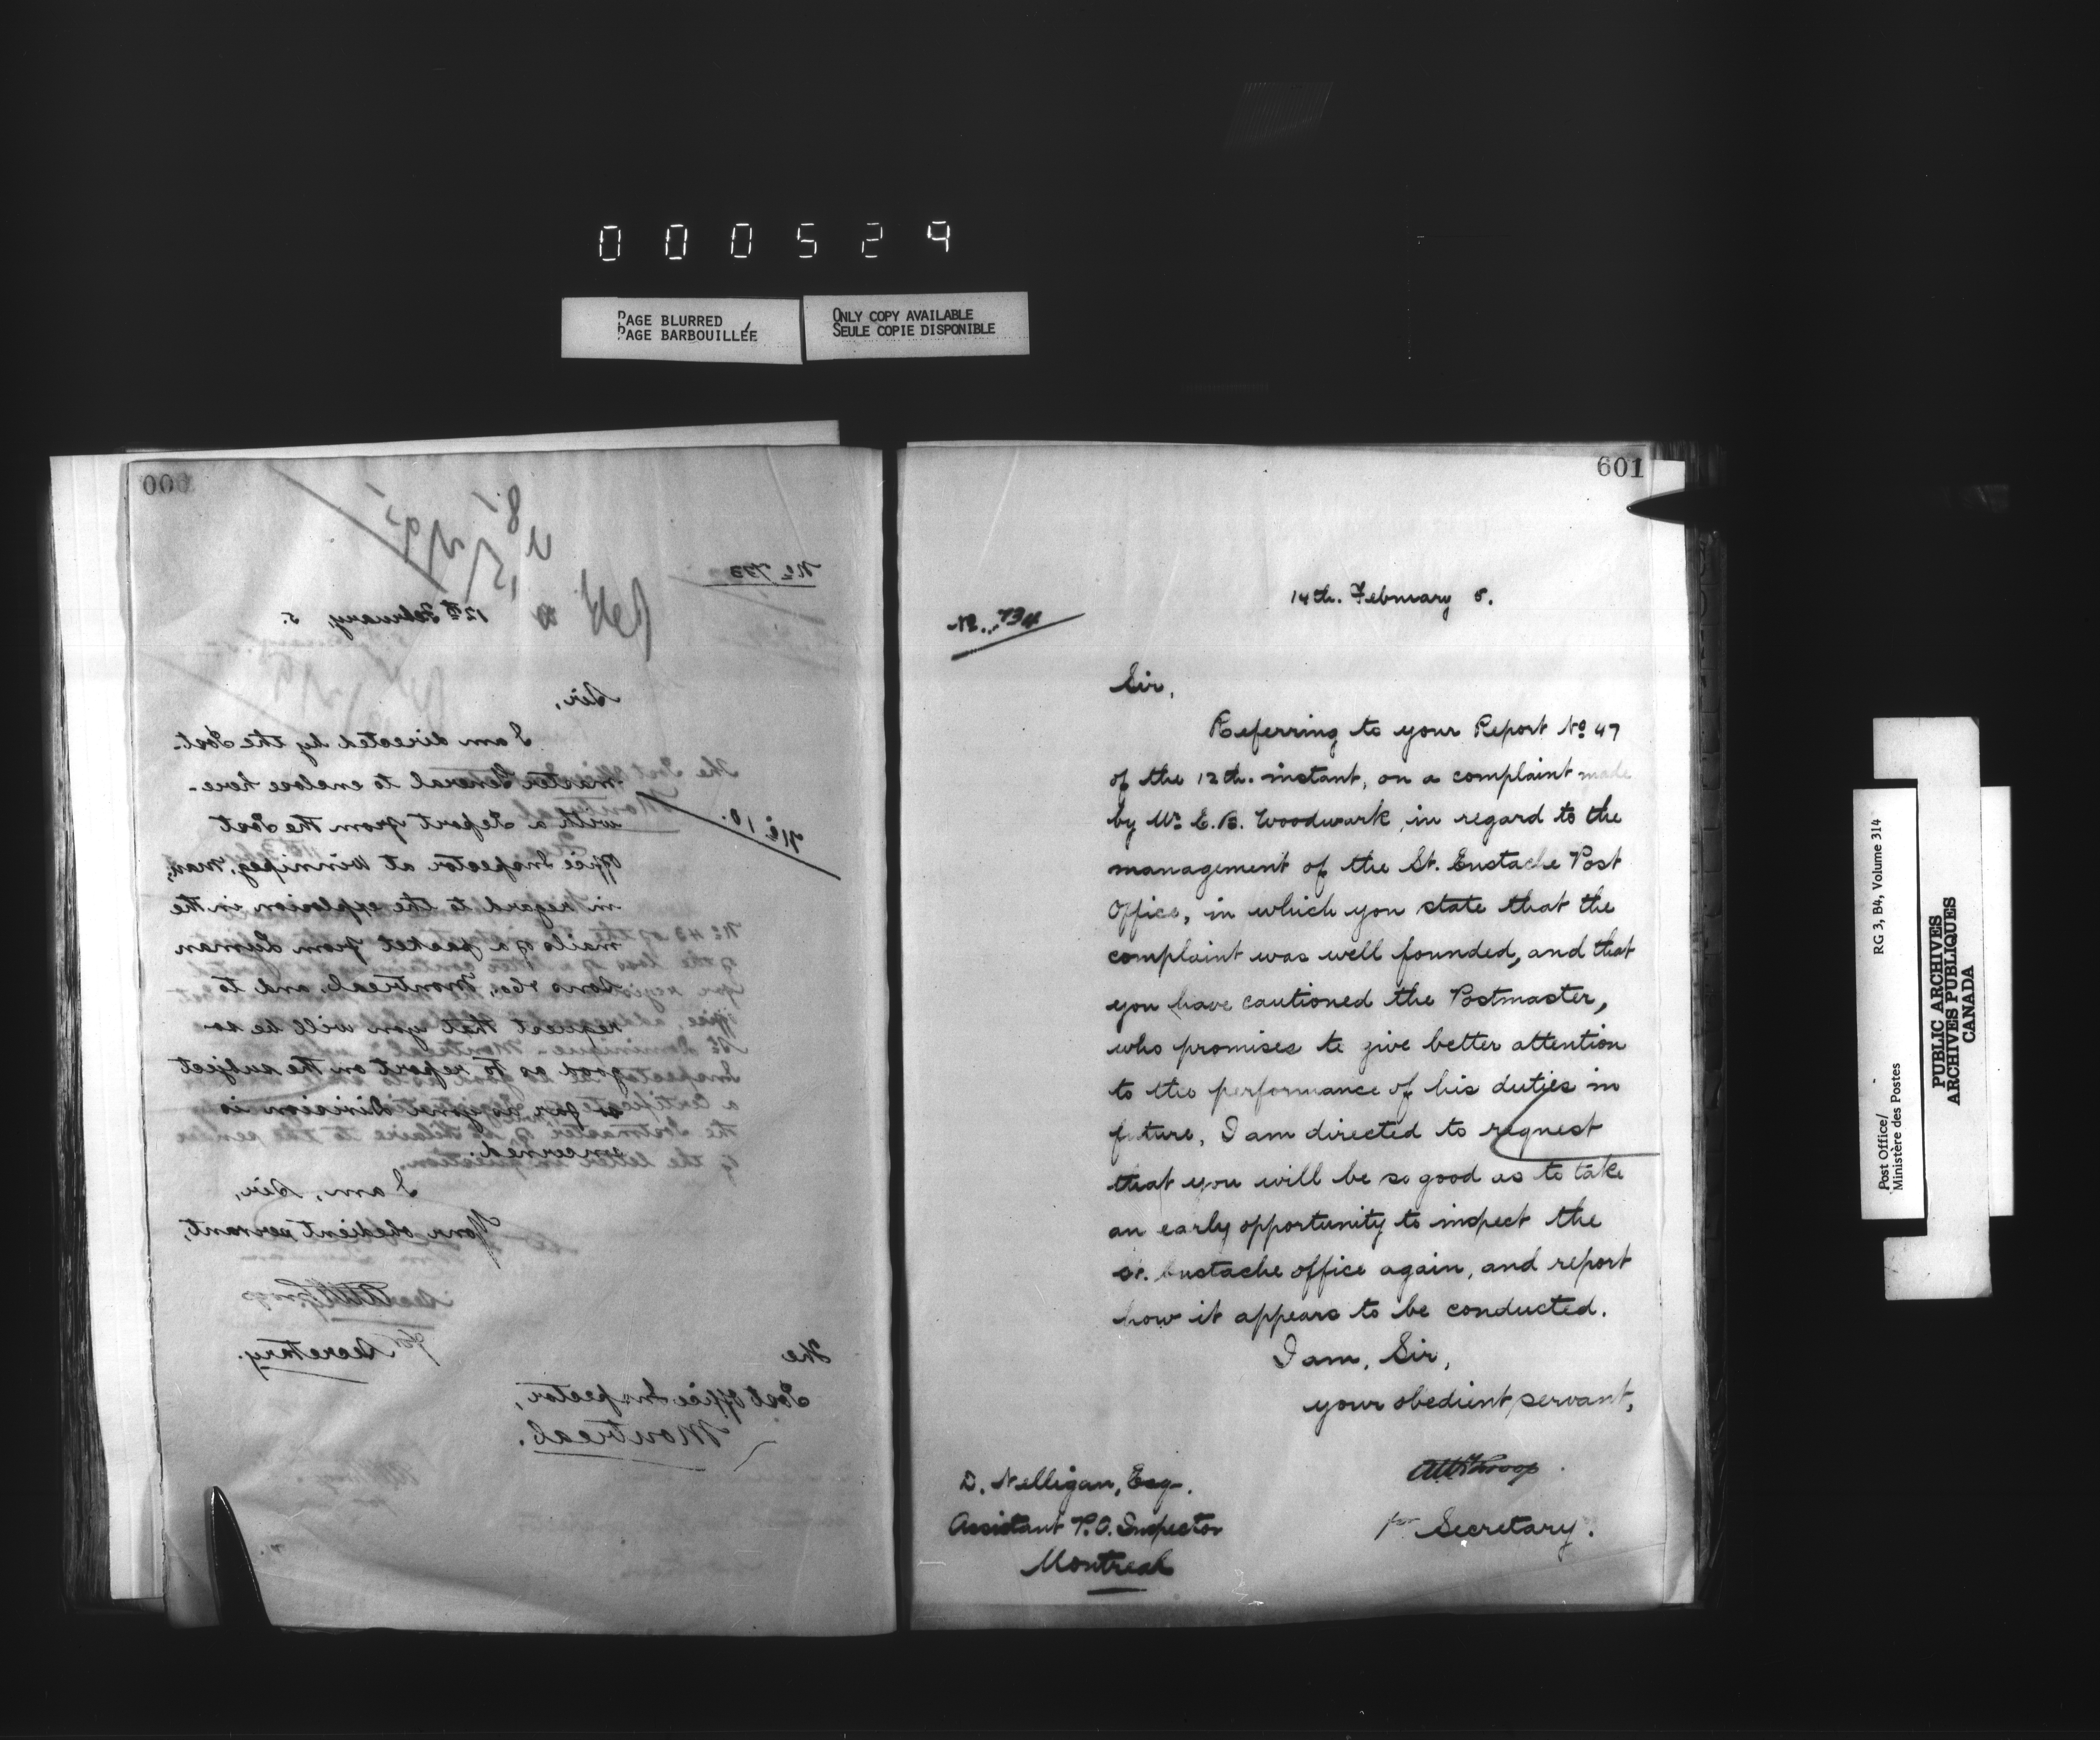 000529
PAGE BLURRED
PAGE BARBOUILLÉE
ONLY COPY AVAILABLE
SEULE COPIE DISPONIBLE
No 733
12th February, 5.
No 10.
Sir,
I am directed by the Post-
master General to enclose here-
with a Report from the Post
Office Inspector at Winnipeg, Man,
in regard to the explosion in the
mails of a packet from Lyman
Sons & Co., Montreal, and to
request that you will be so
good as to report on the subject
so far as your Division is
concerned.
I am, Sir,
Your obedient servant,
for Secretary.
The
Post Office Inspector,
Montreal.
601
14th. February 5.
No. 734
Sir,
Referring to your Report No 47
of the 12th. instant, on a complaint made
by Mr E. B. Woodwark, in regard to the
management of the St. Eustache Post
Office, in which you state that the
complaint was well founded, and that
you have cautioned the Postmaster,
who promises to give better attention
to the performance of his duties in
future, I am directed to request
that you will be so good as to take
an early opportunity to inspect the
St. Eustache office again, and report
how it appears to be conducted.
I am, Sir,
your obedient servant,
for Secretary.
D. Nelligan, Esq.
Assistant P.O. Inspector
Montreal
Post Office/
Ministère des Postes
RG 3, B4, Volume 314
PUBLIC ARCHIVES
ARCHIVES PUBLIQUES
CANADA